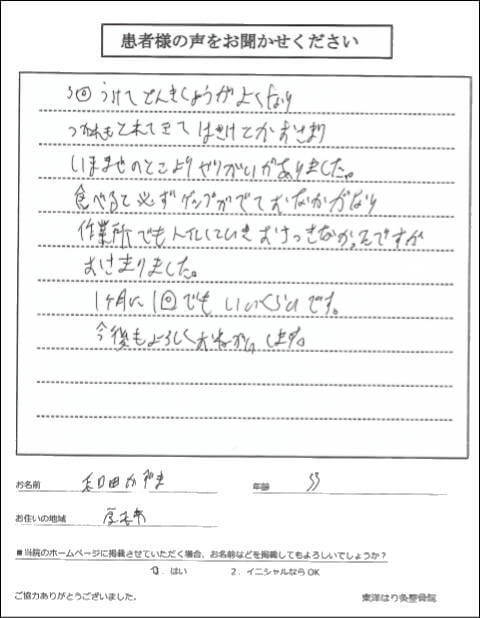 患者様の声をお聞かせください
3回うけてでんきしょうがよくなり
つかれもとれてきて はきけとかおさまり
いままでのとこよりやりがいがありました。
食べると必ずゲップがでておなかがなり
作業所でもトイレに
おさまりました。
1ヶ月に1回でもいいくらいです。
今後もよろしくおねがいします。
お名前
年齢 55
お住いの地域 厚木市
■当院のホームページに掲載させていただく場合、お名前などを掲載してもよろしいでしょうか？
1．はい 2．イニシャルなら OK
ご協力ありがとうございました。 東洋はり灸整骨院